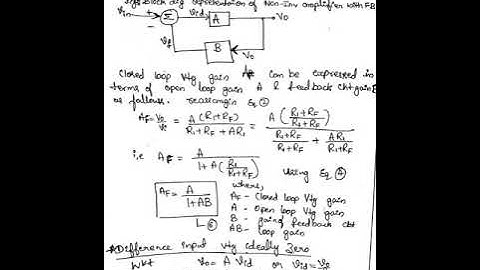 block dig representation of Non-Inv amplifier with FB
Vin + Σ Vid A Vo
−
Vf B
Vo
Closed loop Vtg gain AF can be expressed in
terms of open loop gain A & feedback ckt gain B
as follows.
AF = Vo/Vi = A(R1+RF)/(R1+RF+AR1) = A((R1+RF)/(R1+RF))/((R1+RF)/(R1+RF) + AR1/(R1+RF))
i.e AF = A/(1+A(R1/(R1+RF))) using Eq ④
where,
AF = A/(1+AB) AF - Closed loop Vtg gain
A - open loop Vtg gain
B - gain of feedback ckt
AB - loop gain
Difference input vtg ideally Zero
WKT Vo = A Vid or Vid = Vo